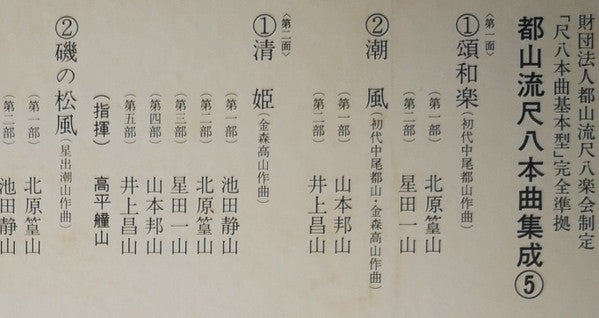 財団法人都山流尺八楽会制定
「尺八本曲基本型」完全準拠
都山流尺八本曲集成⑤
〈第一面〉
①頌和楽(初代中尾都山作曲)
(第一部) 北原篁山
(第二部) 星田一山
②潮 風(初代中尾都山・金森高山作曲)
(第一部) 山本邦山
(第二部) 井上昌山
〈第二面〉
①清 姫(金森高山作曲)
(第一部) 池田静山
(第二部) 北原篁山
(第三部) 星田一山
(第四部) 山本邦山
(第五部) 井上昌山
(指揮) 高平艟山
②磯の松風(星出潮山作曲)
(第一部) 北原篁山
(第二部) 池田静山